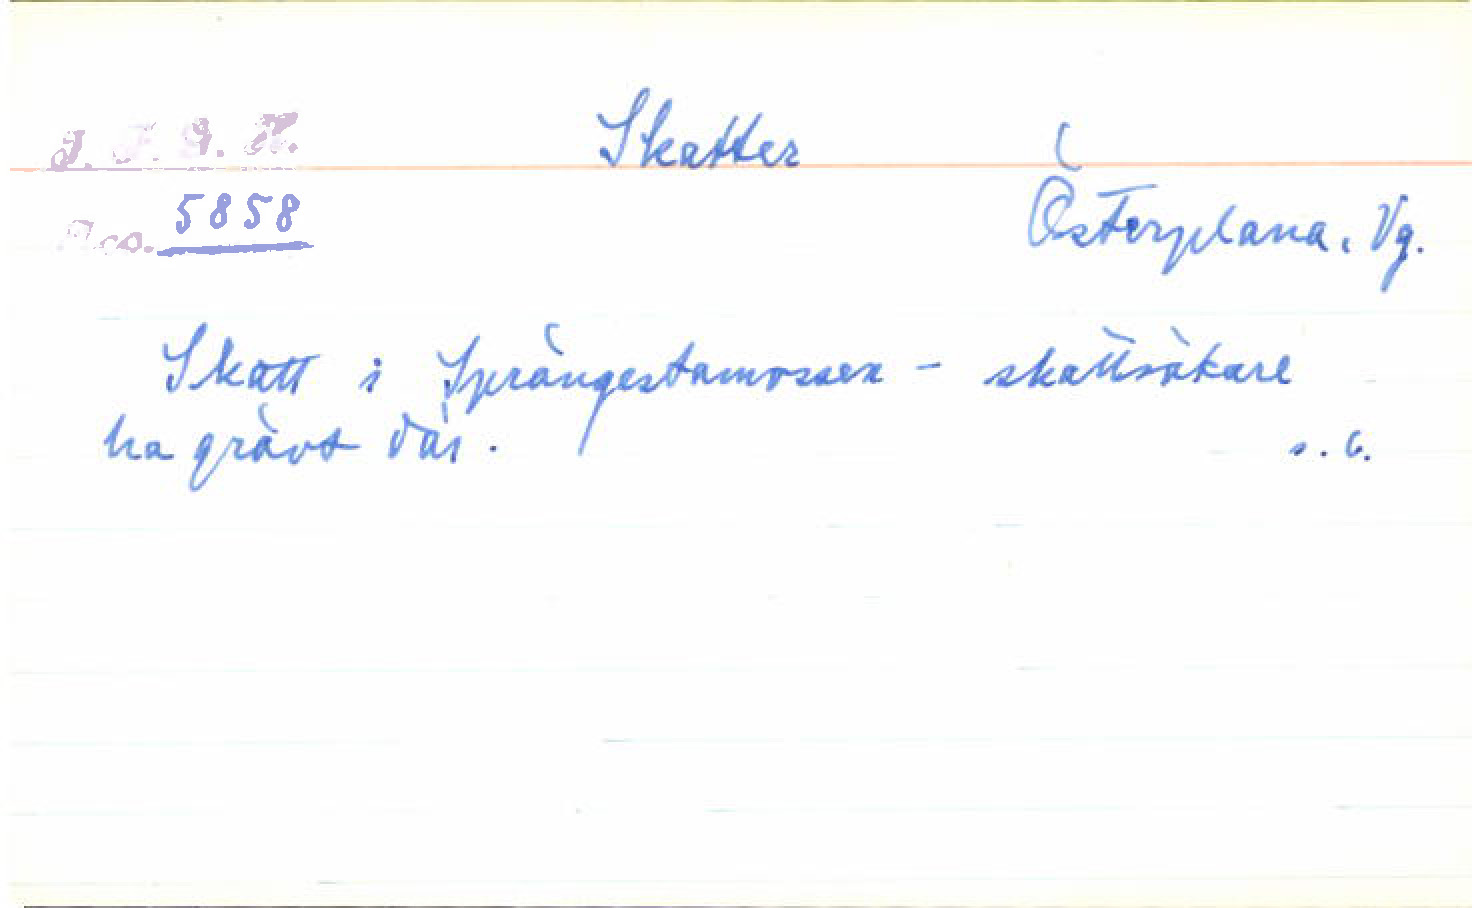 I. F. G. H.
Skatter
Acc. 5858
Österplana, Vg.
Skatt i Sprängestamossen - skattsökare
ha grävt där.
s. 6.